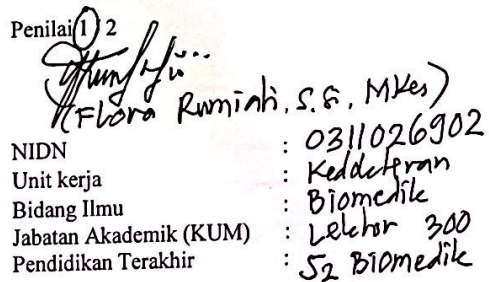 Penilai 1 / 2
(Flora Rumiati, S.Si, MKes)
NIDN : 0311026902
Unit kerja : Kedokteran
Bidang Ilmu : Biomedik
Jabatan Akademik (KUM) : Lektor 300
Pendidikan Terakhir : S2 Biomedik